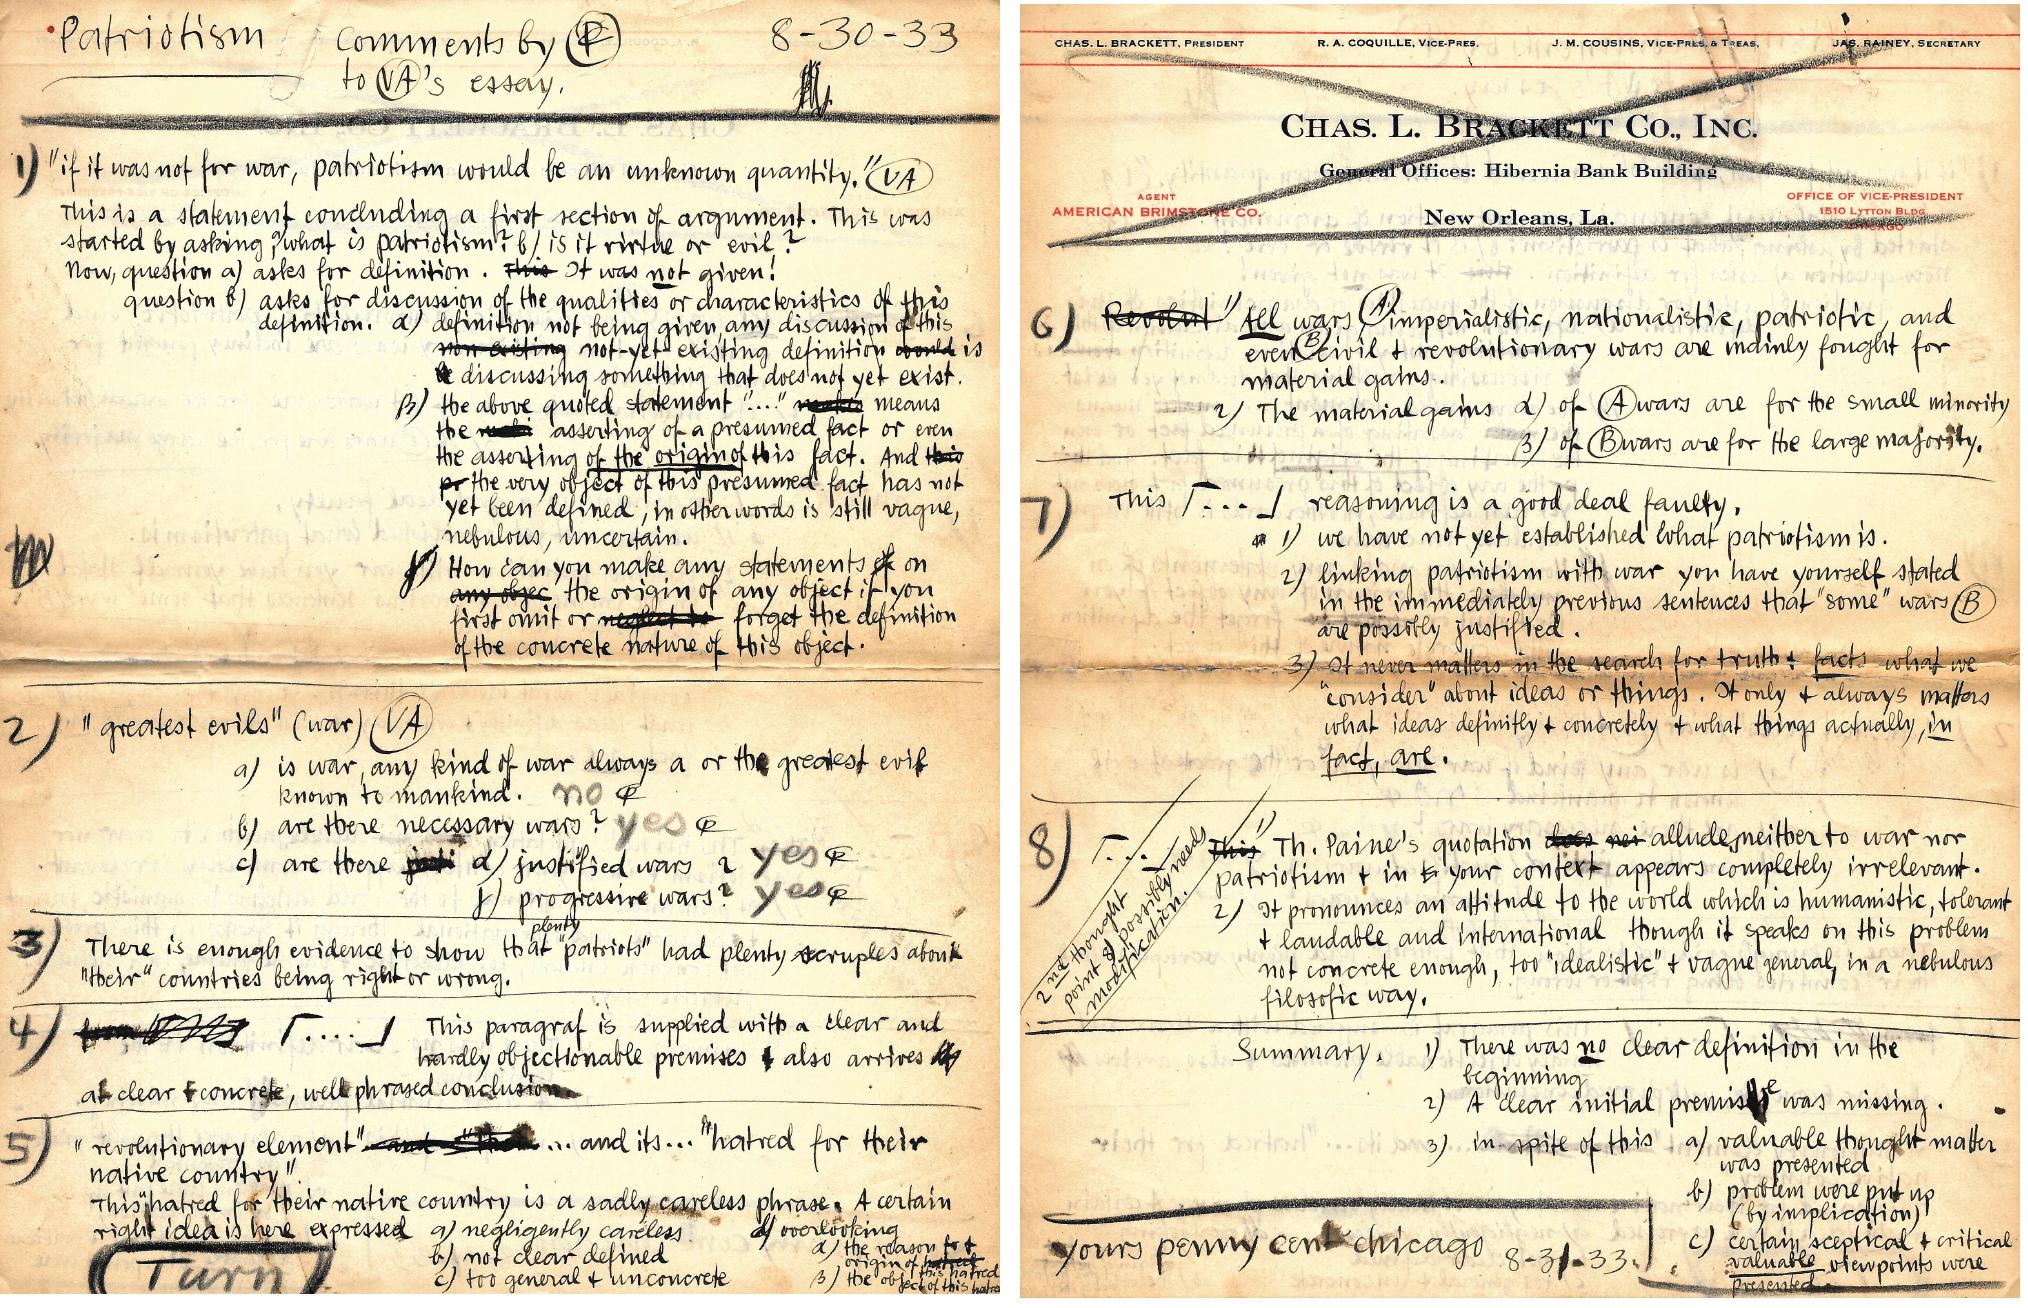 Patriotism Comments by P 8-30-33
to VA's essay.
1) "if it was not for war, patriotism would be an unknown quantity." VA
This is a statement concluding a first section of argument. This was
started by asking, a) what is patriotism? b) is it virtue or evil?
Now, question a) asks for definition. This It was not given!
question b) asks for discussion of the qualities or characteristics of this
definition. α) definition not being given any discussion of this
non-existing not-yet-existing definition would is
be discussing something that does not yet exist.
β) the above quoted statement "...." means
the asserting of a presumed fact or even
the asserting of the origin of this fact. And this
or the very object of this presumed fact has not
yet been defined, in other words is still vague,
nebulous, uncertain.
γ) How can you make any statements of on
any objec the origin of any object if you
first omit or neglect to forget the definition
of the concrete nature of this object.
2) "greatest evils" (war) VA
a) is war, any kind of war always a or the greatest evil
known to mankind. no P
b) are there necessary wars? yes P
c) are there justi α) justified wars ? yes P
γ) progressive wars? yes P
plenty
3) There is enough evidence to show that "patriots" had plenty scruples about
"their" countries being right or wrong.
4) ⌈....⌋ This paragraf is supplied with a clear and
hardly objectionable premises & also arrives
at clear & concrete, well phrased conclusion.
5) "revolutionary element" and "the ... and its... "hatred for their
native country".
This "hatred for their native country is a sadly careless phrase. A certain
right idea is here expressed a) negligently careless d) overlooking
b) not clear defined α) the reason for &
origin of hatred this hatred
c) too general & unconcrete β) the object of this hatred
Turn
CHAS. L. BRACKETT, PRESIDENT R. A. COQUILLE, VICE-PRES. J. M. COUSINS, VICE-PRES. & TREAS. JAS. RAINEY, SECRETARY
CHAS. L. BRACKETT CO., INC.
General Offices: Hibernia Bank Building
AGENT
AMERICAN BRIMSTONE CO.
New Orleans, La.
OFFICE OF VICE-PRESIDENT
1510 LYTTON BLDG
CHICAGO
6) Revolut " All wars A imperialistic, nationalistic, patriotic, and
even B civil & revolutionary wars are mainly fought for
material gains.
2) The material gains α) of A wars are for the small minority
β) of B wars are for the large majority.
7) This ⌈....⌋ reasoning is a good deal faulty.
1) we have not yet established what patriotism is.
2) linking patriotism with war you have yourself stated
in the immediately previous sentences that "some" wars B
are possibly justified.
3) It never matters in the search for truth & facts what we
"consider" about ideas or things. It only & always matters
what ideas definitly & concretely & what things actually, in
fact, are.
8) ⌈...⌋ This 1) Th. Paine's quotation does nei allude, neither to war nor
patriotism & in your context appears completely irrelevant.
2) It pronounces an attitude to the world which is humanistic, tolerant
& laudable and international though it speaks on this problem
not concrete enough, too "idealistic" & vague general, in a nebulous
filosofic way.
2nd thought
point 8 possibly needs
modification.
Summary. 1) There was no clear definition in the
beginning
2) A clear initial premise was missing.
3) in spite of this a) valuable thought matter
was presented
b) problem were put up
(by implication)
c) certain sceptical & critical
valuable viewpoints were
presented.
yours penny cent chicago 8-31-33.